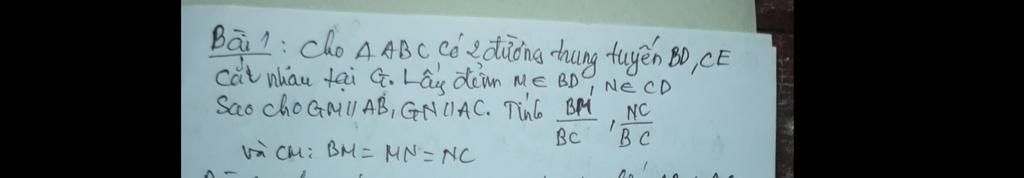 Bài 1: Cho Δ ABC có 2 đường trung tuyến BD, CE
cắt nhau tại G. Lấy điểm M ∈ BD, N ∈ CD
Sao cho GM // AB, GN // AC. Tính BM/BC, NC/BC
và CM: BM = MN = NC